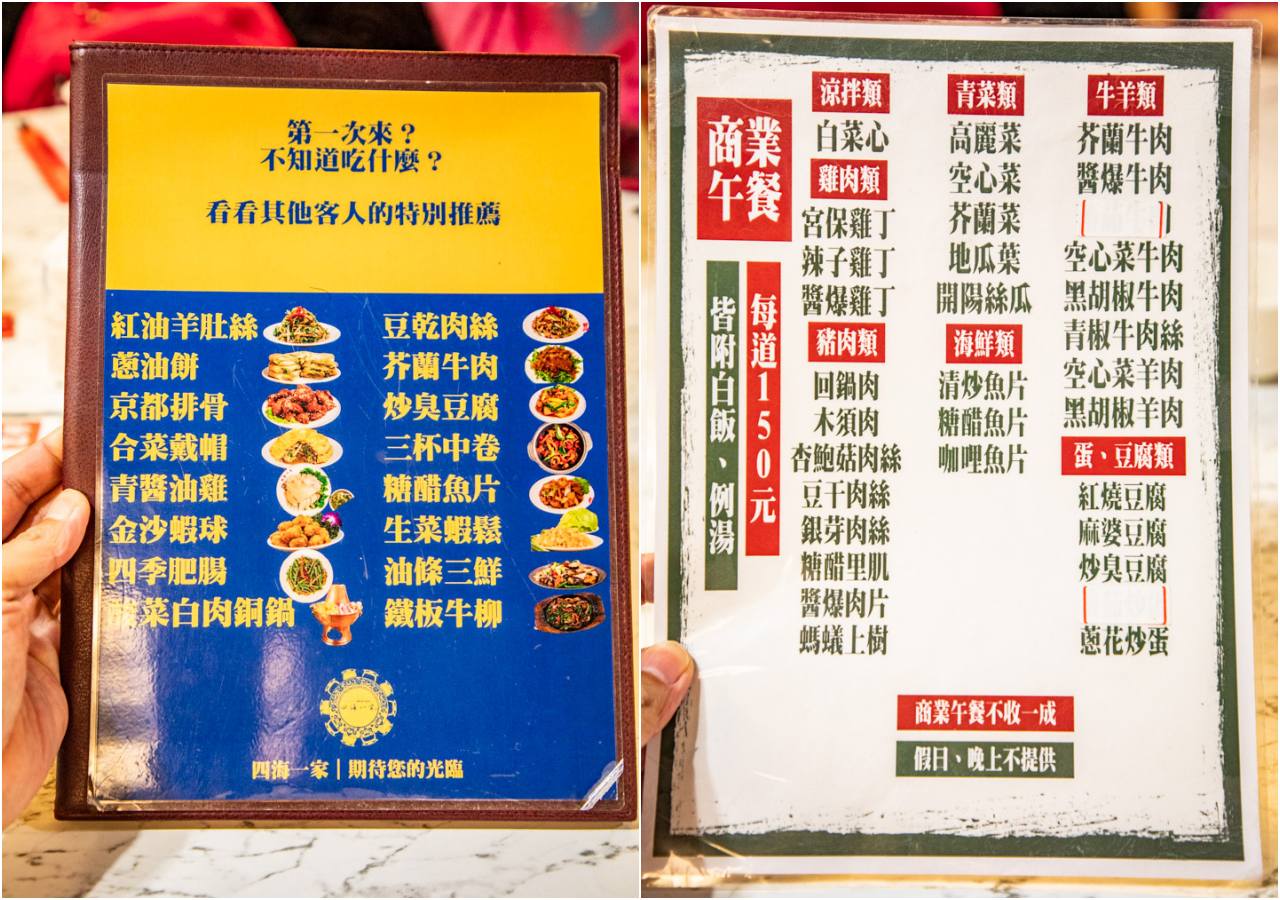 第一次來？
不知道吃什麼？
看看其他客人的特別推薦
紅油羊肚絲
蔥油餅
京都排骨
合菜戴帽
青醬油雞
金沙蝦球
四季肥腸
菜白肉銅鍋
豆乾肉絲
芥蘭牛肉
炒臭豆腐
三杯中卷
糖醋魚片
生菜蝦鬆
油條三鮮
鐵板牛柳
四海一家｜期待您的光臨
商業
午餐
每道150元
皆附白飯、例湯
涼拌類
白菜心
雞肉類
宮保雞丁
辣子雞丁
醬爆雞丁
豬肉類
回鍋肉
木須肉
杏鮑菇肉絲
豆干肉絲
銀芽肉絲
糖醋里肌
醬爆肉片
螞蟻上樹
青菜類
高麗菜
空心菜
芥蘭菜
地瓜葉
開陽絲瓜
海鮮類
清炒魚片
糖醋魚片
咖哩魚片
牛羊類
芥蘭牛肉
醬爆牛肉
空心菜牛肉
黑胡椒牛肉
青椒牛肉絲
空心菜羊肉
黑胡椒羊肉
蛋、豆腐類
紅燒豆腐
麻婆豆腐
炒臭豆腐
蔥花炒蛋
商業午餐不收一成
假日、晚上不提供